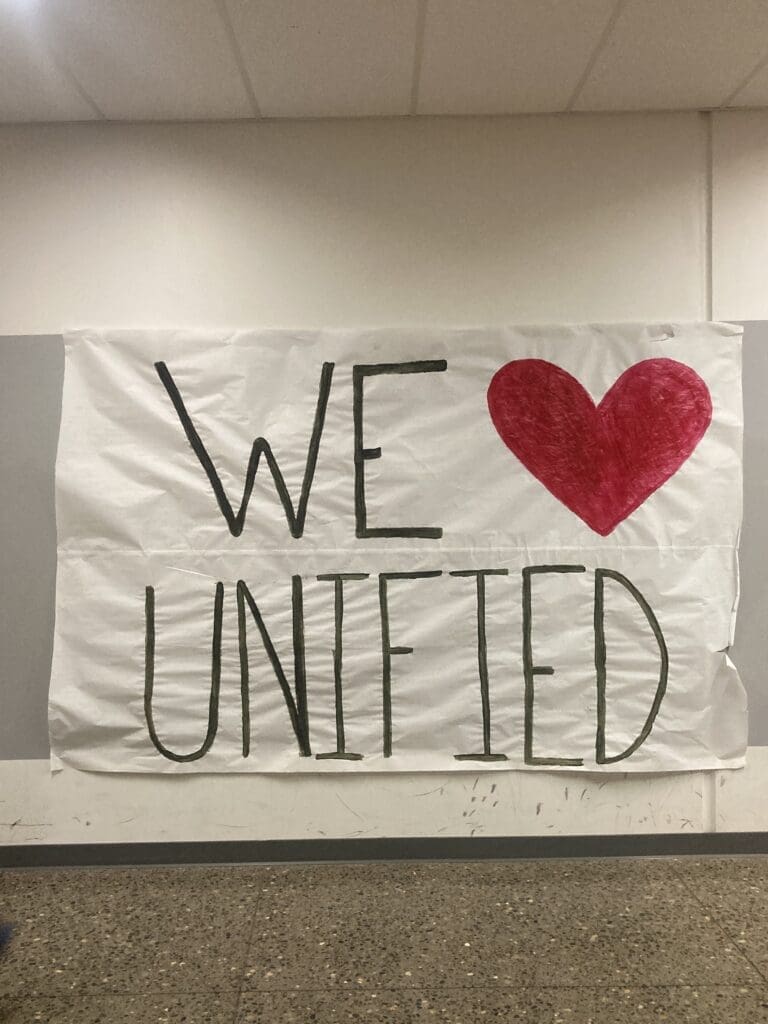 WE ❤
UNIFIED